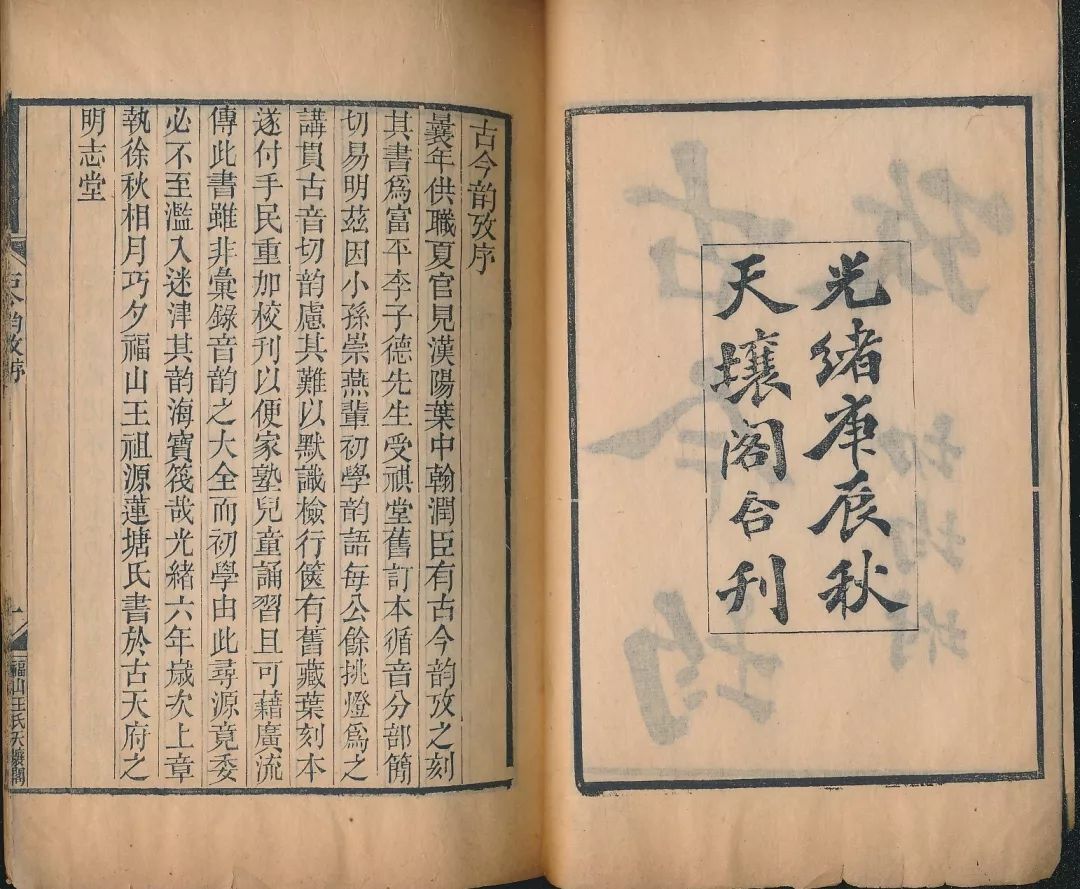 光緒庚辰秋
天壤閣合刊
古今韵攷序
曩年供職夏官見漢陽葉中翰潤臣有古今韵攷之刻
其書爲富平李子德先生受祺堂舊訂本循音分部簡
切易明茲因小孫崇燕輩初學韵語每公餘挑燈爲之
講貫古音切韵慮其難以默識檢行篋有舊藏葉刻本
遂付手民重加校刊以便家塾兒童誦習且可藉廣流
傳此書雖非彙錄音韵之大全而初學由此尋源竟委
必不至濫入迷津其韵海寶筏哉光緒六年歲次上章
執徐秋相月巧夕福山王祖源蓮塘氏書於古天府之
明志堂
古今韵攷序
一
福山王氏天壤閣